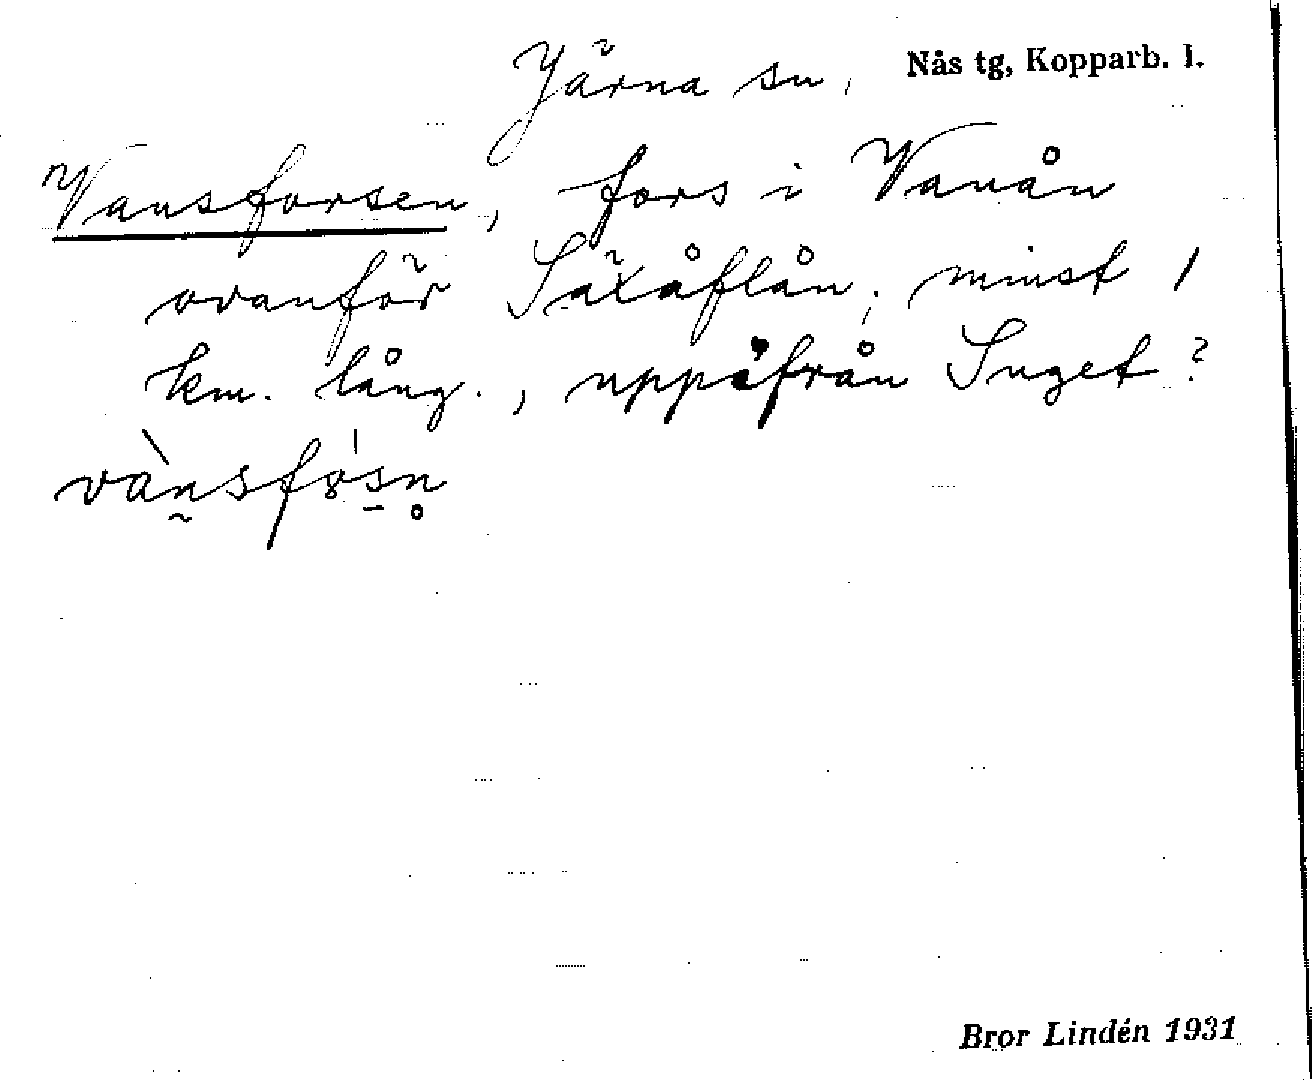 Järna sn, Nås tg, Kopparb. l.
Vansforsen, fors i Vanån
ovanför Säxåflån, minst 1
km. lång., uppifrån Suget?
vànsfo̍sn̥
Bror Lindén 1931